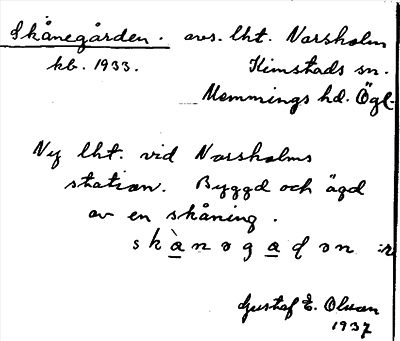 Skånegården. avs. lht. Norsholm
kb. 1933. Kimstads sn.
Memmings hd. Ögl.
Ny lht. vid Norsholms
station. Byggd och ägd
av en skåning.
skànəgaḍən
Gustaf E. Olsson
1937